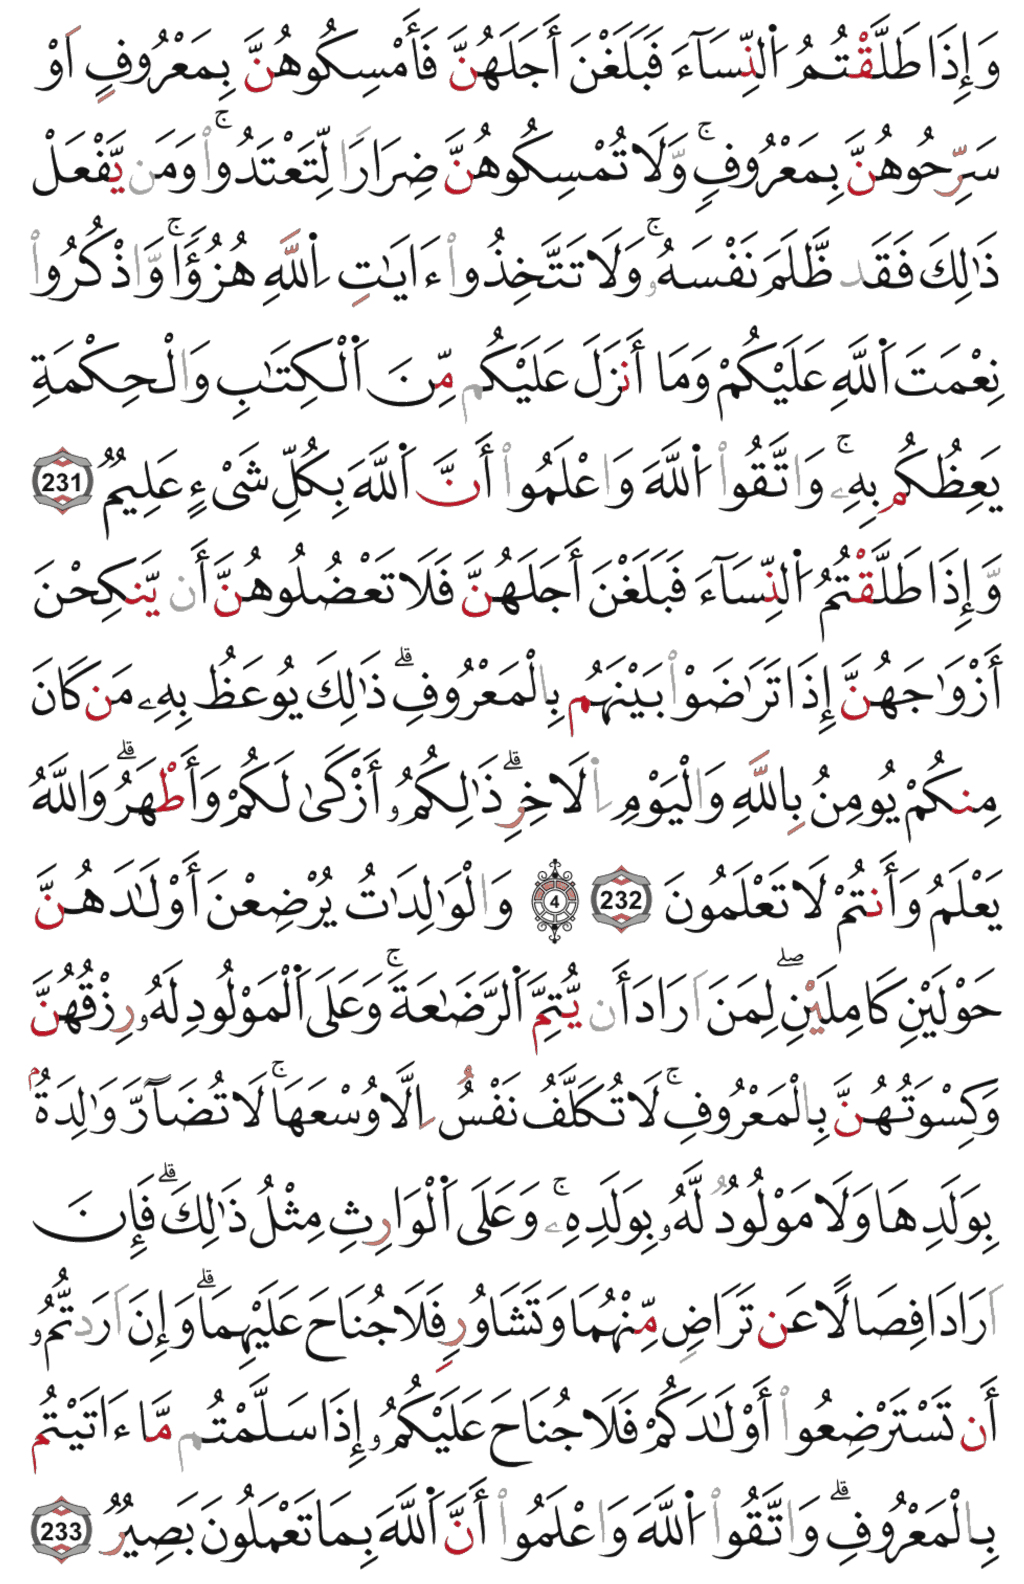 وَإِذَا طَلَّقْتُمُ اُ۬لنِّسَآءَ فَبَلَغْنَ أَجَلَهُنَّ فَأَمْسِكُوهُنَّ بِمَعْرُوفٍ اَوْ
سَرِّحُوهُنَّ بِمَعْرُوفٍۚ وَّلَا تُمْسِكُوهُنَّ ضِرَارًا لِّتَعْتَدُواْۚ وَمَن يَّفْعَلْ
ذَٰلِكَ فَقَد ظَّلَمَ نَفْسَهُۥۚ وَلَا تَتَّخِذُواْ ءَايَٰتِ اِ۬للَّهِ هُزُؤًاۚ وَّاذْكُرُواْ
نِعْمَتَ اَ۬للَّهِ عَلَيْكُمْ وَمَا أَنزَلَ عَلَيْكُم مِّنَ اَ۬لْكِتَٰبِ وَالْحِكْمَةِ
يَعِظُكُم بِهِۦۚ وَاتَّقُواْ اُ۬للَّهَ وَاعْلَمُواْ أَنَّ اَ۬للَّهَ بِكُلِّ شَىْءٍ عَلِيمٌ 231
وَّإِذَا طَلَّقْتُمُ اُ۬لنِّسَآءَ فَبَلَغْنَ أَجَلَهُنَّ فَلَا تَعْضُلُوهُنَّ أَن يَّنكِحْنَ
أَزْوَٰجَهُنَّ إِذَا تَرَٰضَوْاْ بَيْنَهُم بِالْمَعْرُوفِۗ ذَٰلِكَ يُوعَظُ بِهِۦ مَن كَانَ
مِنكُمْ يُومِنُ بِاللَّهِ وَالْيَوْمِ اِ۬لَاخِرِۗ ذَٰلِكُمُۥ أَزْكَىٰ لَكُمْ وَأَطْهَرُۗ وَاللَّهُ
يَعْلَمُ وَأَنتُمْ لَا تَعْلَمُونَ 232 4 وَالْوَٰلِدَٰتُ يُرْضِعْنَ أَوْلَٰدَهُنَّ
حَوْلَيْنِ كَامِلَيْنِۖ لِمَنَ اَرَادَ أَن يُّتِمَّ اَ۬لرَّضَٰعَةَۚ وَعَلَى اَ۬لْمَوْلُودِ لَهُۥ رِزْقُهُنَّ
وَكِسْوَتُهُنَّ بِالْمَعْرُوفِۚ لَا تُكَلَّفُ نَفْسٌ اِلَّا وُسْعَهَاۚ لَا تُضَآرَّ وَٰلِدَةُۢ
بِوَلَدِهَا وَلَا مَوْلُودٌ لَّهُۥ بِوَلَدِهِۦۚ وَعَلَى اَ۬لْوَارِثِ مِثْلُ ذَٰلِكَۗ فَإِنَ
اَرَادَا فِصَالًا عَن تَرَاضٍ مِّنْهُمَا وَتَشَاوُرٍ فَلَا جُنَاحَ عَلَيْهِمَاۗ وَإِنَ اَرَدتُّمُۥ
أَن تَسْتَرْضِعُواْ أَوْلَٰدَكُمْ فَلَا جُنَاحَ عَلَيْكُمُۥ إِذَا سَلَّمْتُم مَّا ءَاتَيْتُم
بِالْمَعْرُوفِۗ وَاتَّقُواْ اُ۬للَّهَ وَاعْلَمُواْ أَنَّ اَ۬للَّهَ بِمَا تَعْمَلُونَ بَصِيرٌ 233